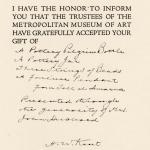 I HAVE THE HONOR TO INFORM
YOU THAT THE TRUSTEES OF THE
METROPOLITAN MUSEUM OF ART
HAVE GRATEFULLY ACCEPTED YOUR
GIFT OF
A Pottery Begging Bowl
A Pottery Jar
Three Strings of Beads
A Pendant
America
Presented through
the generosity of Mrs.
H. W. Kent